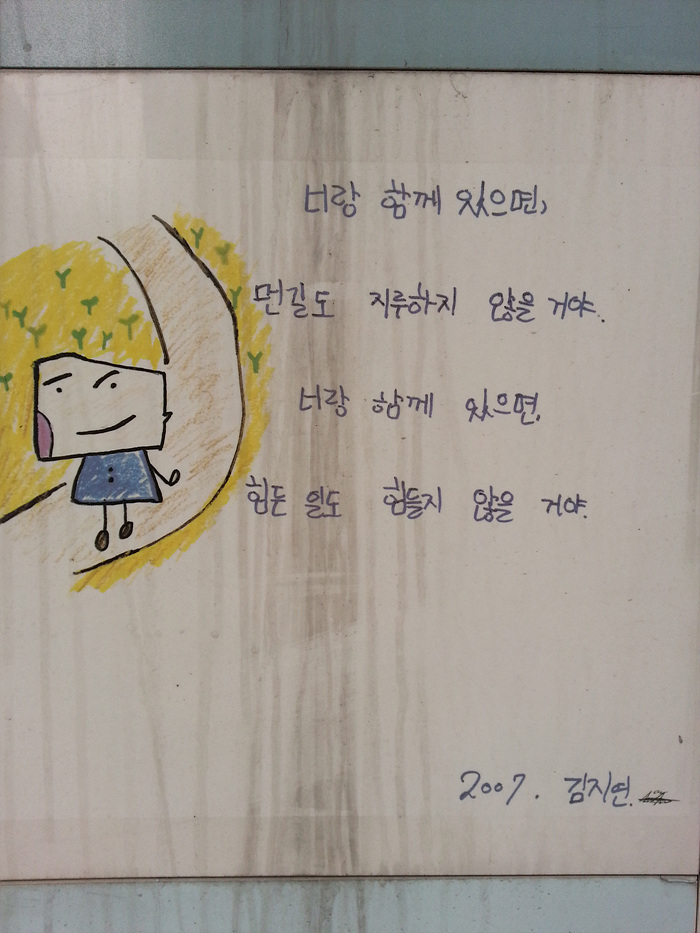 너랑 함께 있으면,
먼길도 지루하지 않을 거야.
너랑 함께 있으면,
힘든 일도 힘들지 않을 거야.
2007. 김지연.